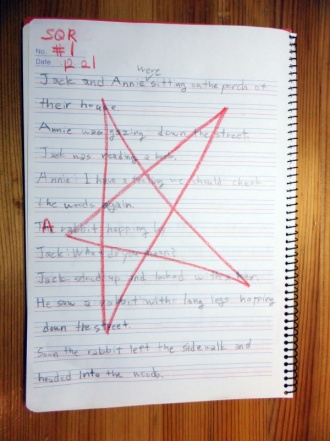 SQR
No. #1
Date 12 21
were
Jack and Annie sitting on the porch of
their house
Annie was gazing down the street.
Jack was reading a book.
Annie: I have a feeling we should check
the woods again.
A
The rabbit hopping by
Jack: What do you mean?
Jack stood up and looked with her.
He saw a rabbit with long legs hopping
down the street.
Soon the rabbit left the sidewalk and
headed into the woods.